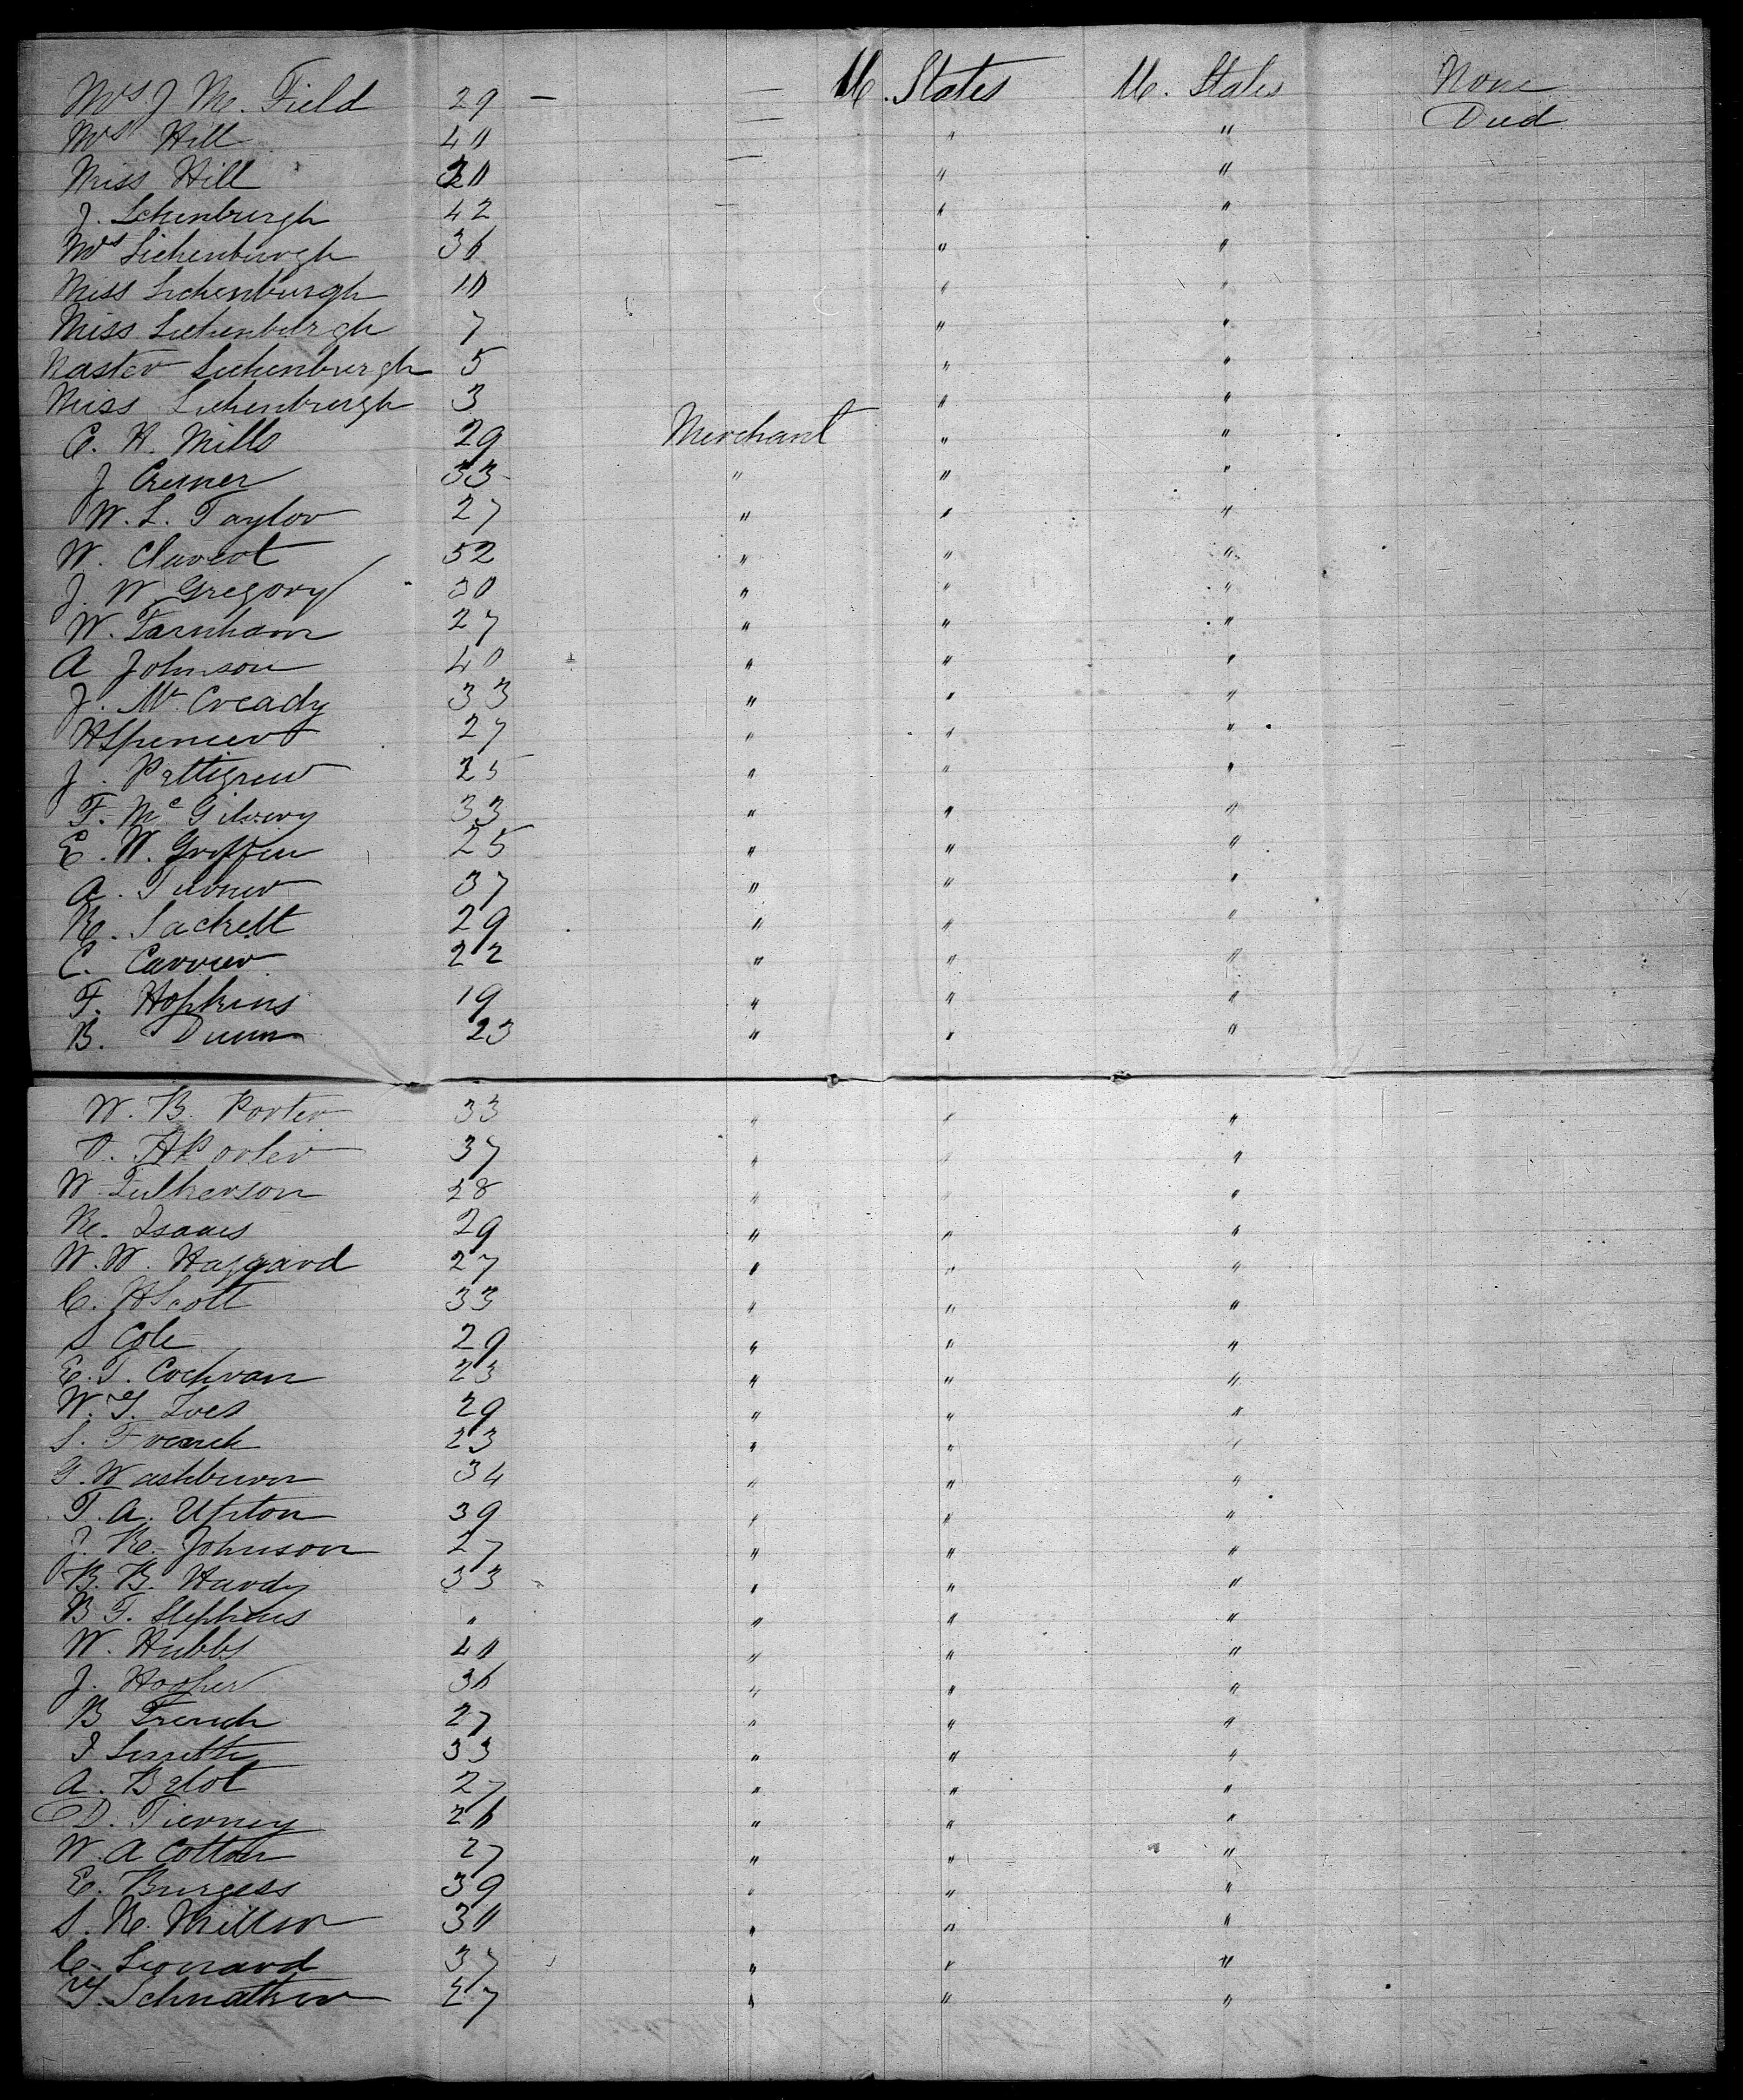 Mrs. J Mc. Field 29 — — U. States U. States None
Died
Mrs Hill 40 — " "
Miss Hill 20 — " "
J. Lichenburgh 42 — " "
Mrs Lichenburgh 36 " "
Miss Lichenburgh 10 " "
Miss Lichenburgh 7 " "
Master Lichenburgh 5 " "
Miss Lichenburgh 3 " "
C. H. Mills 29 Merchant " "
J 33 " " "
W. L. Taylor 27 " " "
W. 52 " " "
J. W. Gregory 30 " " "
W. Farnham 27 " " "
A Johnson 40 " " "
J. Mc Cready 33 " " "
H Spencer 27 " " "
J. Pettigrew 25 " " "
F. Mc Gilvery 33 " " "
E. W. Griffin 25 " " "
A. Turner 37 " " "
R. Sackett 29 " " "
C. Carrier 22 " " "
F. Hopkins 19 " " "
B. Dunn 23 " " "
W. B. Porter 33 " " "
D. H Porter 37 " " "
W. Fulkerson 28 " " "
R. Isaacs 29 " " "
W. W. Haggard 27 " " "
C. H Scott 33 " " "
S Cole 29 " " "
E. T. Cochran 23 " " "
W. G. Ives 29 " " "
S. French 23 " " "
G. Washburn 34 " " "
T. A. Upton 39 " " "
J. R. Johnson 27 " " "
B. B. Hardy 33 " " "
B F. Stephens " " " "
W. Hubbs 40 " " "
J. Hooper 36 " " "
B French 27 " " "
J Smith 33 " " "
A. Belot 27 " " "
D. Tierney 26 " " "
W. A Cotton 27 " " "
E. Burgess 39 " " "
S. R. Miller 30 " " "
C. Leonard 37 " " "
27 " " "